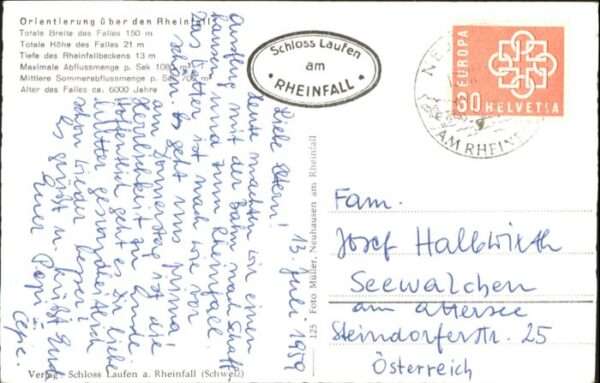 Orientierung über den Rheinfall
Totale Breite des Falles 150 m
Totale Höhe des Falles 21 m
Tiefe des Rheinfallbeckens 13 m
Maximale Abflussmenge p. Sek 1080 m
Mittlere Sommerabflussmenge p. Sek 700 m
Alter des Falles ca. 6000 Jahre
Schloss Laufen
am
RHEINFALL
EUROPA
50
HELVETIA
AM RHEIN
13. Juli 1959
Liebe Eltern!
Heute machten wir einen
Ausflug mit der Bahn nach Schaff-
hausen und zum Rheinfall.
Das Wetter ist nach wie vor
schön. Es geht uns prima!
am Donnerstag ist die
Herrlichkeit zu Ende.
Hoffentlich geht es Dir liebe
Mutter gesundheitlich
schon wieder besser!
Es grüßt u. küßt Euch
Euer Pepi
125 Foto Müller, Neuhausen am Rheinfall
Fam.
Josef Halbwirth
Seewalchen
am attersee
Steindorferstr. 25
Österreich
Verlag Schloss Laufen a. Rheinfall (Schweiz)